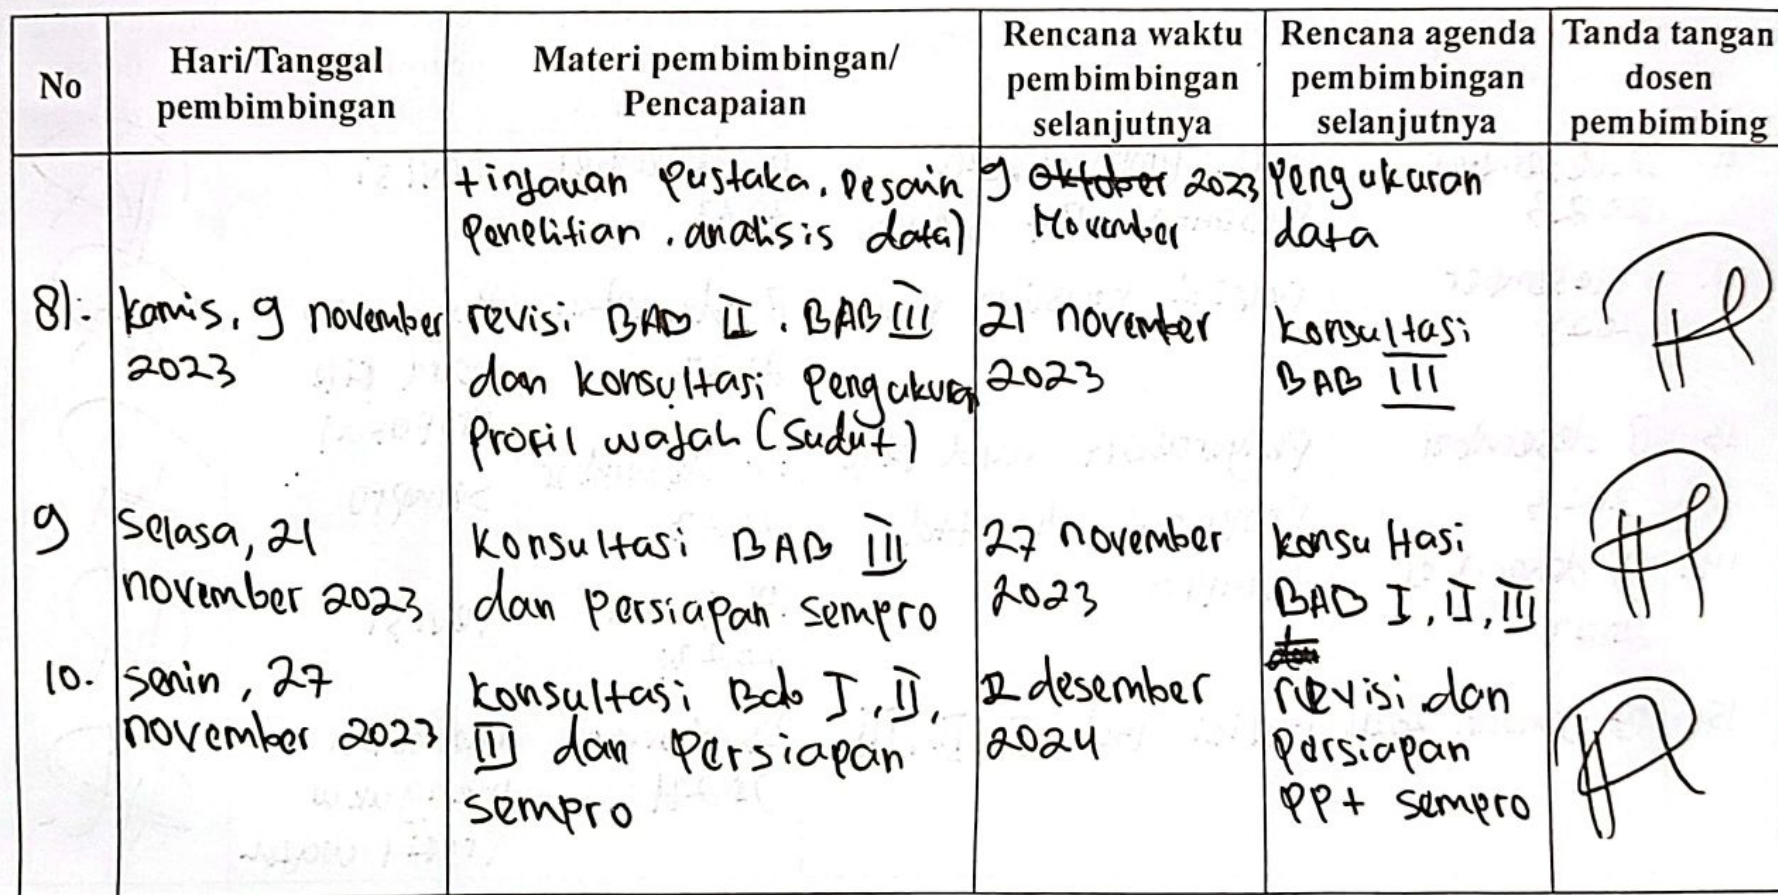 No
Hari/Tanggal
pembimbingan
Materi pembimbingan/
Pencapaian
Rencana waktu
pembimbingan
selanjutnya
Rencana agenda
pembimbingan
selanjutnya
Tanda tangan
dosen
pembimbing
tinjauan pustaka, Desain
Penelitian, analisis data)
9 Oktober 2023
November
Pengukuran
data
8).
kamis, 9 november
2023
revisi BAB II, BAB III
dan konsultasi Pengukuran
Profil wajah (Sudut)
21 november
2023
konsultasi
BAB III
9
Selasa, 21
november 2023
konsultasi BAB III
dan Persiapan sempro
27 november
2023
konsultasi
BAB I, II, III
dan
10.
senin, 27
november 2023
konsultasi Bab I, II,
III dan Persiapan
sempro
2 desember
2024
revisi dan
persiapan
PPt sempro